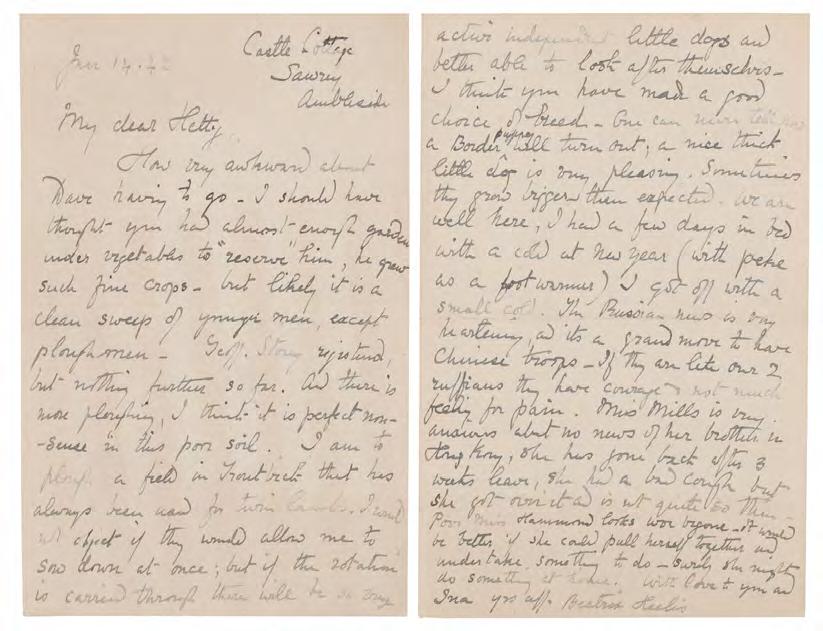 Jan 14. 42
Castle Cottage
Sawrey
Ambleside
My dear Hetty,
How very awkward about
Dave having to go - I should have
thought you had almost enough garden
under vegetables to "reserve" him, he grew
such fine crops - but likely it is a
clean sweep of younger men, except
ploughmen - Geoff. Storey registered,
but nothing further so far. And there is
more ploughing, I think it is perfect non-
-sense in this poor soil. I am to
plough a field in Troutbeck that has
always been used for twin lambs. I would
not object if they would allow me to
sow down at once; but if the rotation
is carried through there will be no
active independent little dogs and
better able to look after themselves -
I think you have made a good
choice of breed - One can never tell how
a Border puppy will turn out; a nice thick
little dog is very pleasing. Sometimes
they grow bigger than expected. We are
well here, I had a few days in bed
with a cold at New Year (with peke
as a footwarmer) I got off with a
small cold. The Russian news is very
heartening, and its a grand move to have
Chinese troops - If they are like our 2
ruffians they have courage & not much
feeling for pain. Miss Mills is very
anxious about no news of her brother in
Hong Kong, she has gone back after 3
weeks leave, she had a bad cough but
she got over it and is not quite so thin -
Poor Miss Hammond looks woe begone - it would
be better if she could pull herself together and
undertake something to do - surely she might
do something at home. With love to you and
Ina yrs aff. Beatrix Heelis